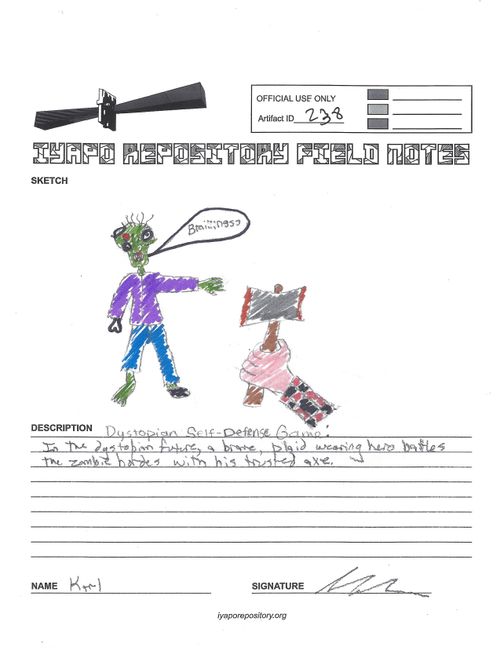 OFFICIAL USE ONLY
Artifact ID 238
IYAPO REPOSITORY FIELD NOTES
SKETCH
Braiiiingsss
DESCRIPTION Dystopian Self-Defense Game:
In the dystopian future, a brave, plaid wearing hero battles
the zombie hordes with his trusted axe.
NAME Karl
SIGNATURE
iyaporepository.org